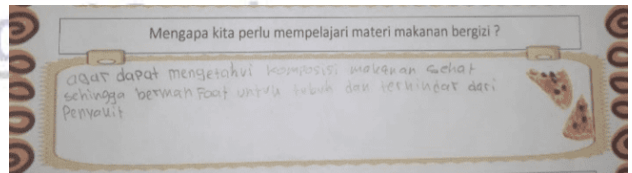 Mengapa kita perlu mempelajari materi makanan bergizi ?
agar dapat mengetahui komposisi makanan sehat
sehingga bermanfaat untuk tubuh dan terhindar dari
Penyakit